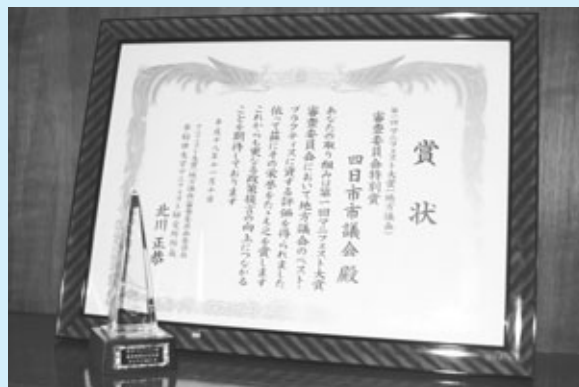 賞状
第一回マニフェスト大賞(地方議会)
審査委員会特別賞
四日市市議会 殿
あなたの取り組みは第一回マニフェスト大賞
審査委員会において地方議会のベスト・
プラクティスに資する評価を得られました
依って茲にその栄誉をたたえ之を賞します
これからも更なる政策提言の向上につながる
ことを期待しております
平成十八年十一月十日
北川 正恭